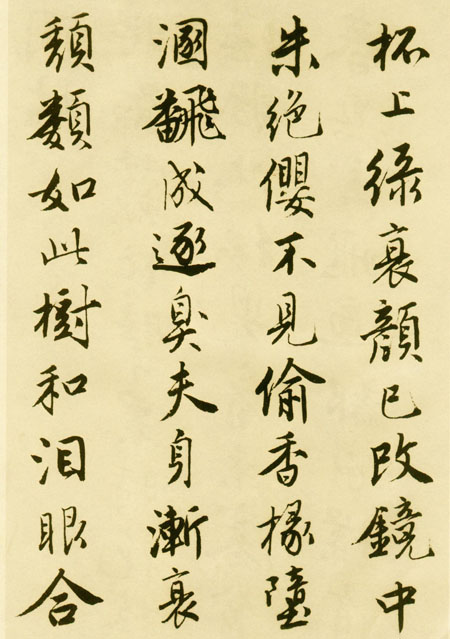 杯上綠衰顏已改鏡中
朱絕纓不見偷香掾墮
溷飜成逐臭夫身漸衰
頹類如此樹和泪眼合